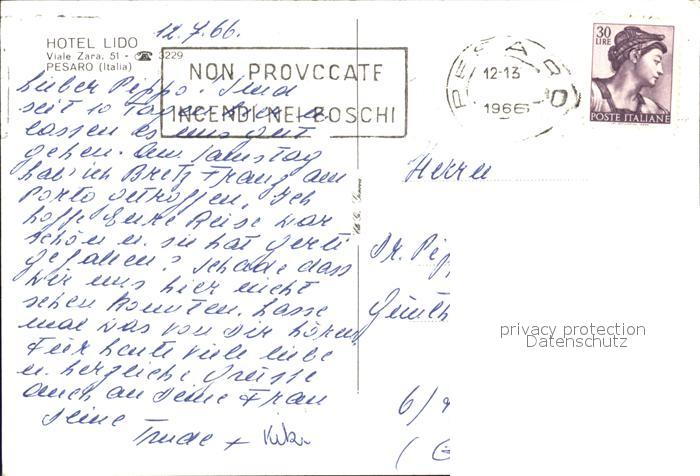 12.7.66.
HOTEL LIDO
Viale Zara, 51 - ☎ 3229
PESARO (Italia)
NON PROVOCATE
INCENDI NEI BOSCHI
PESARO
12-13
1966
30
LIRE
POSTE ITALIANE
Lieber Pippo! Sind
seit 10 Tagen hier u.
lassen es uns gut
gehen. Am Samstag
hab ich Bretz Franz am
Porto getroffen. Ich
hoffe Eure Reise war
schön u. sie hat Gerti
gefallen? Schade dass
wir uns hier nicht
sehen konnten. Lasse
mal was von Dir hören
Für heute viele liebe
u. herzliche Grüsse
auch an Deine Frau
Deine
Trude +
Herrn
Dr. Pip
Günth
6/
(
privacy protection
Datenschutz